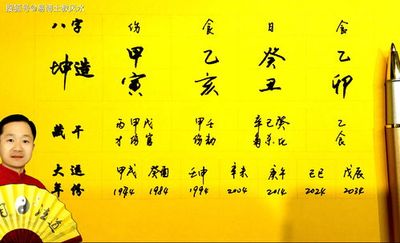 搜狐号@易博士叔风水
八字 伤 食 日 食
坤造 甲 乙 癸 乙
寅 亥 丑 卯
藏干 丙甲戊 甲壬 辛己癸 乙
才伤官 伤劫 枭杀比 食
大运 甲戌 癸酉 壬申 辛未 庚午 己巳 戊辰
年份 1974 1984 1994 2004 2014 2024 2034